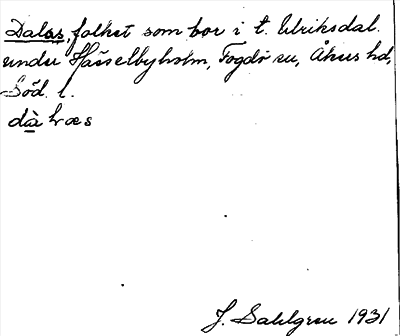 Dalas, folket som bor i t. Ulriksdal.
under Hässelbyholm, Fogdö sn, Åkers hd,
Söd. l.
dà læs
J. Sahlgren 1931